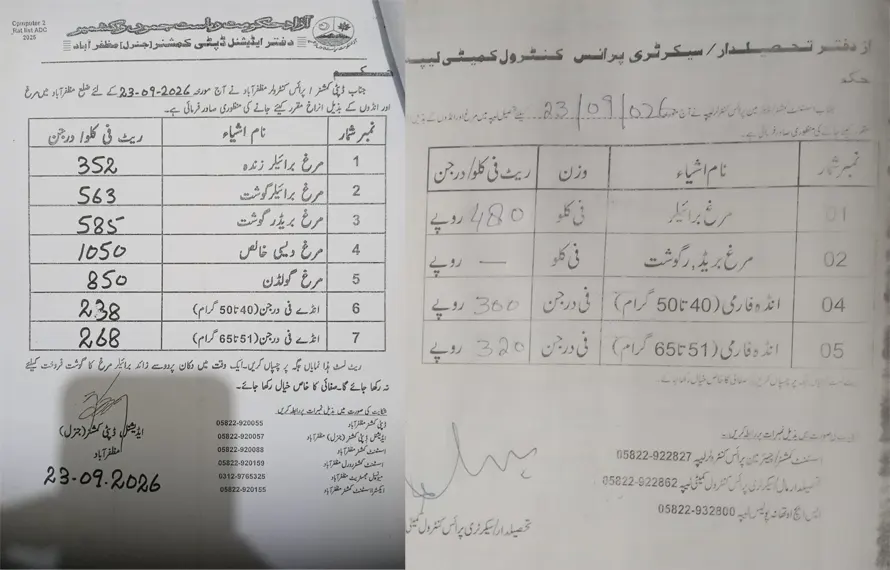 Computer 2
Rat list ADC
2025
آزاد حکومت ریاست جموں و کشمیر
دفتر ایڈیشنل ڈپٹی کمشنر (جنرل) مظفرآباد
حکم
جناب ڈپٹی کمشنر / پرائس کنٹرولر مظفرآباد نے آج مورخہ 23-09-2026 کے لئے ضلع مظفرآباد میں مرغ
اور انڈوں کے بذیل نرخ مقرر کیئے جانے کی منظوری صادر فرمائی ہے۔
نمبر شمار نام اشیاء ریٹ فی کلو/ درجن
1 مرغ برائیلر زندہ 352
2 مرغ برائیلر گوشت 563
3 مرغ بریڈر گوشت 585
4 مرغ دیسی خالص 1050
5 مرغ گولڈن 850
6 انڈے فی درجن (40 تا 50 گرام) 238
7 انڈے فی درجن (51 تا 65 گرام) 268
ریٹ لسٹ ہذا نمایاں جگہ پر چسپاں کریں۔ ایک وقت میں دکان پر دو سے زائد برائیلر مرغ کا گوشت فروخت کیلئے
نہ رکھا جائے گا۔ صفائی کا خاص خیال رکھا جائے۔
شکایت کی صورت میں بذیل نمبرات پر رابطہ کریں۔
ڈپٹی کمشنر مظفرآباد 05822-920055
ایڈیشنل ڈپٹی کمشنر (جنرل) مظفرآباد 05822-920057
اسسٹنٹ کمشنر مظفرآباد 05822-920088
اسسٹنٹ کمشنر رورل مظفرآباد 05822-920159
میونسپل مجسٹریٹ مظفرآباد 0312-9765325
ایکسٹرا اسسٹنٹ کمشنر مظفرآباد 05822-920155
ایڈیشنل ڈپٹی کمشنر (جنرل)
مظفرآباد
23.09.2026
از دفتر تحصیلدار/ سیکرٹری پرائس کنٹرول کمیٹی لیپہ
حکم
جناب اسسٹنٹ کمشنر/ چیئرمین پرائس کنٹرولر لیپہ نے آج مورخہ 23/09/026 کیلئے تحصیل لیپہ میں مرغ اور انڈوں کے بذیل
کی منظوری صادر فرمائی ہے۔
نمبر شمار نام اشیاء وزن ریٹ فی کلو/ درجن
01 مرغ برائیلر فی کلو 480 روپے
02 مرغ بریڈر گوشت فی کلو — روپے
04 انڈہ فارمی (40 تا 50 گرام) فی درجن 300 روپے
05 انڈہ فارمی (51 تا 65 گرام) فی درجن 320 روپے
صورت میں بذیل نمبرات پر رابطہ کریں۔
اسسٹنٹ کمشنر/ چیئرمین پرائس کنٹرولر لیپہ 05822-922827
تحصیلدار مال/ سیکرٹری پرائس کنٹرول کمیٹی لیپہ 05822-922862
ایس ایچ او تھانہ پولیس لیپہ 05822-932800
تحصیلدار/ سیکرٹری پرائس کنٹرول کمیٹی